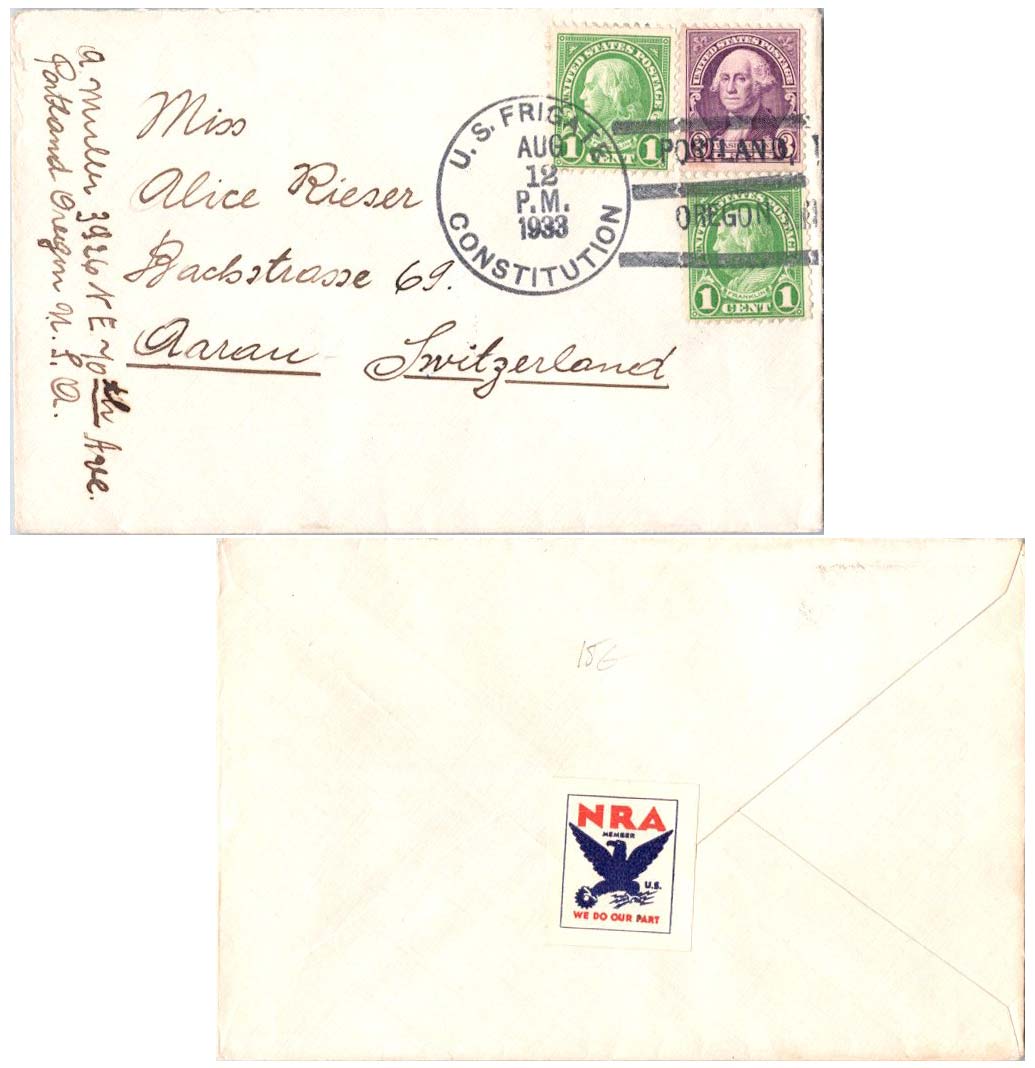 A Muller 3926 N E 70th Ave.
Portland Oregon U. S. A.
Miss
Alice Rieser
Bachstrasse 69.
Aarau Switzerland
U.S. FRIGATE
AUG
12
P.M.
1933
CONSTITUTION
PORTLAND,
OREGON
UNITED STATES POSTAGE
1 CENT 1
UNITED STATES POSTAGE
3 3
UNITED STATES POSTAGE
FRANKLIN
1 CENT 1
15
NRA
MEMBER
U.S.
WE DO OUR PART